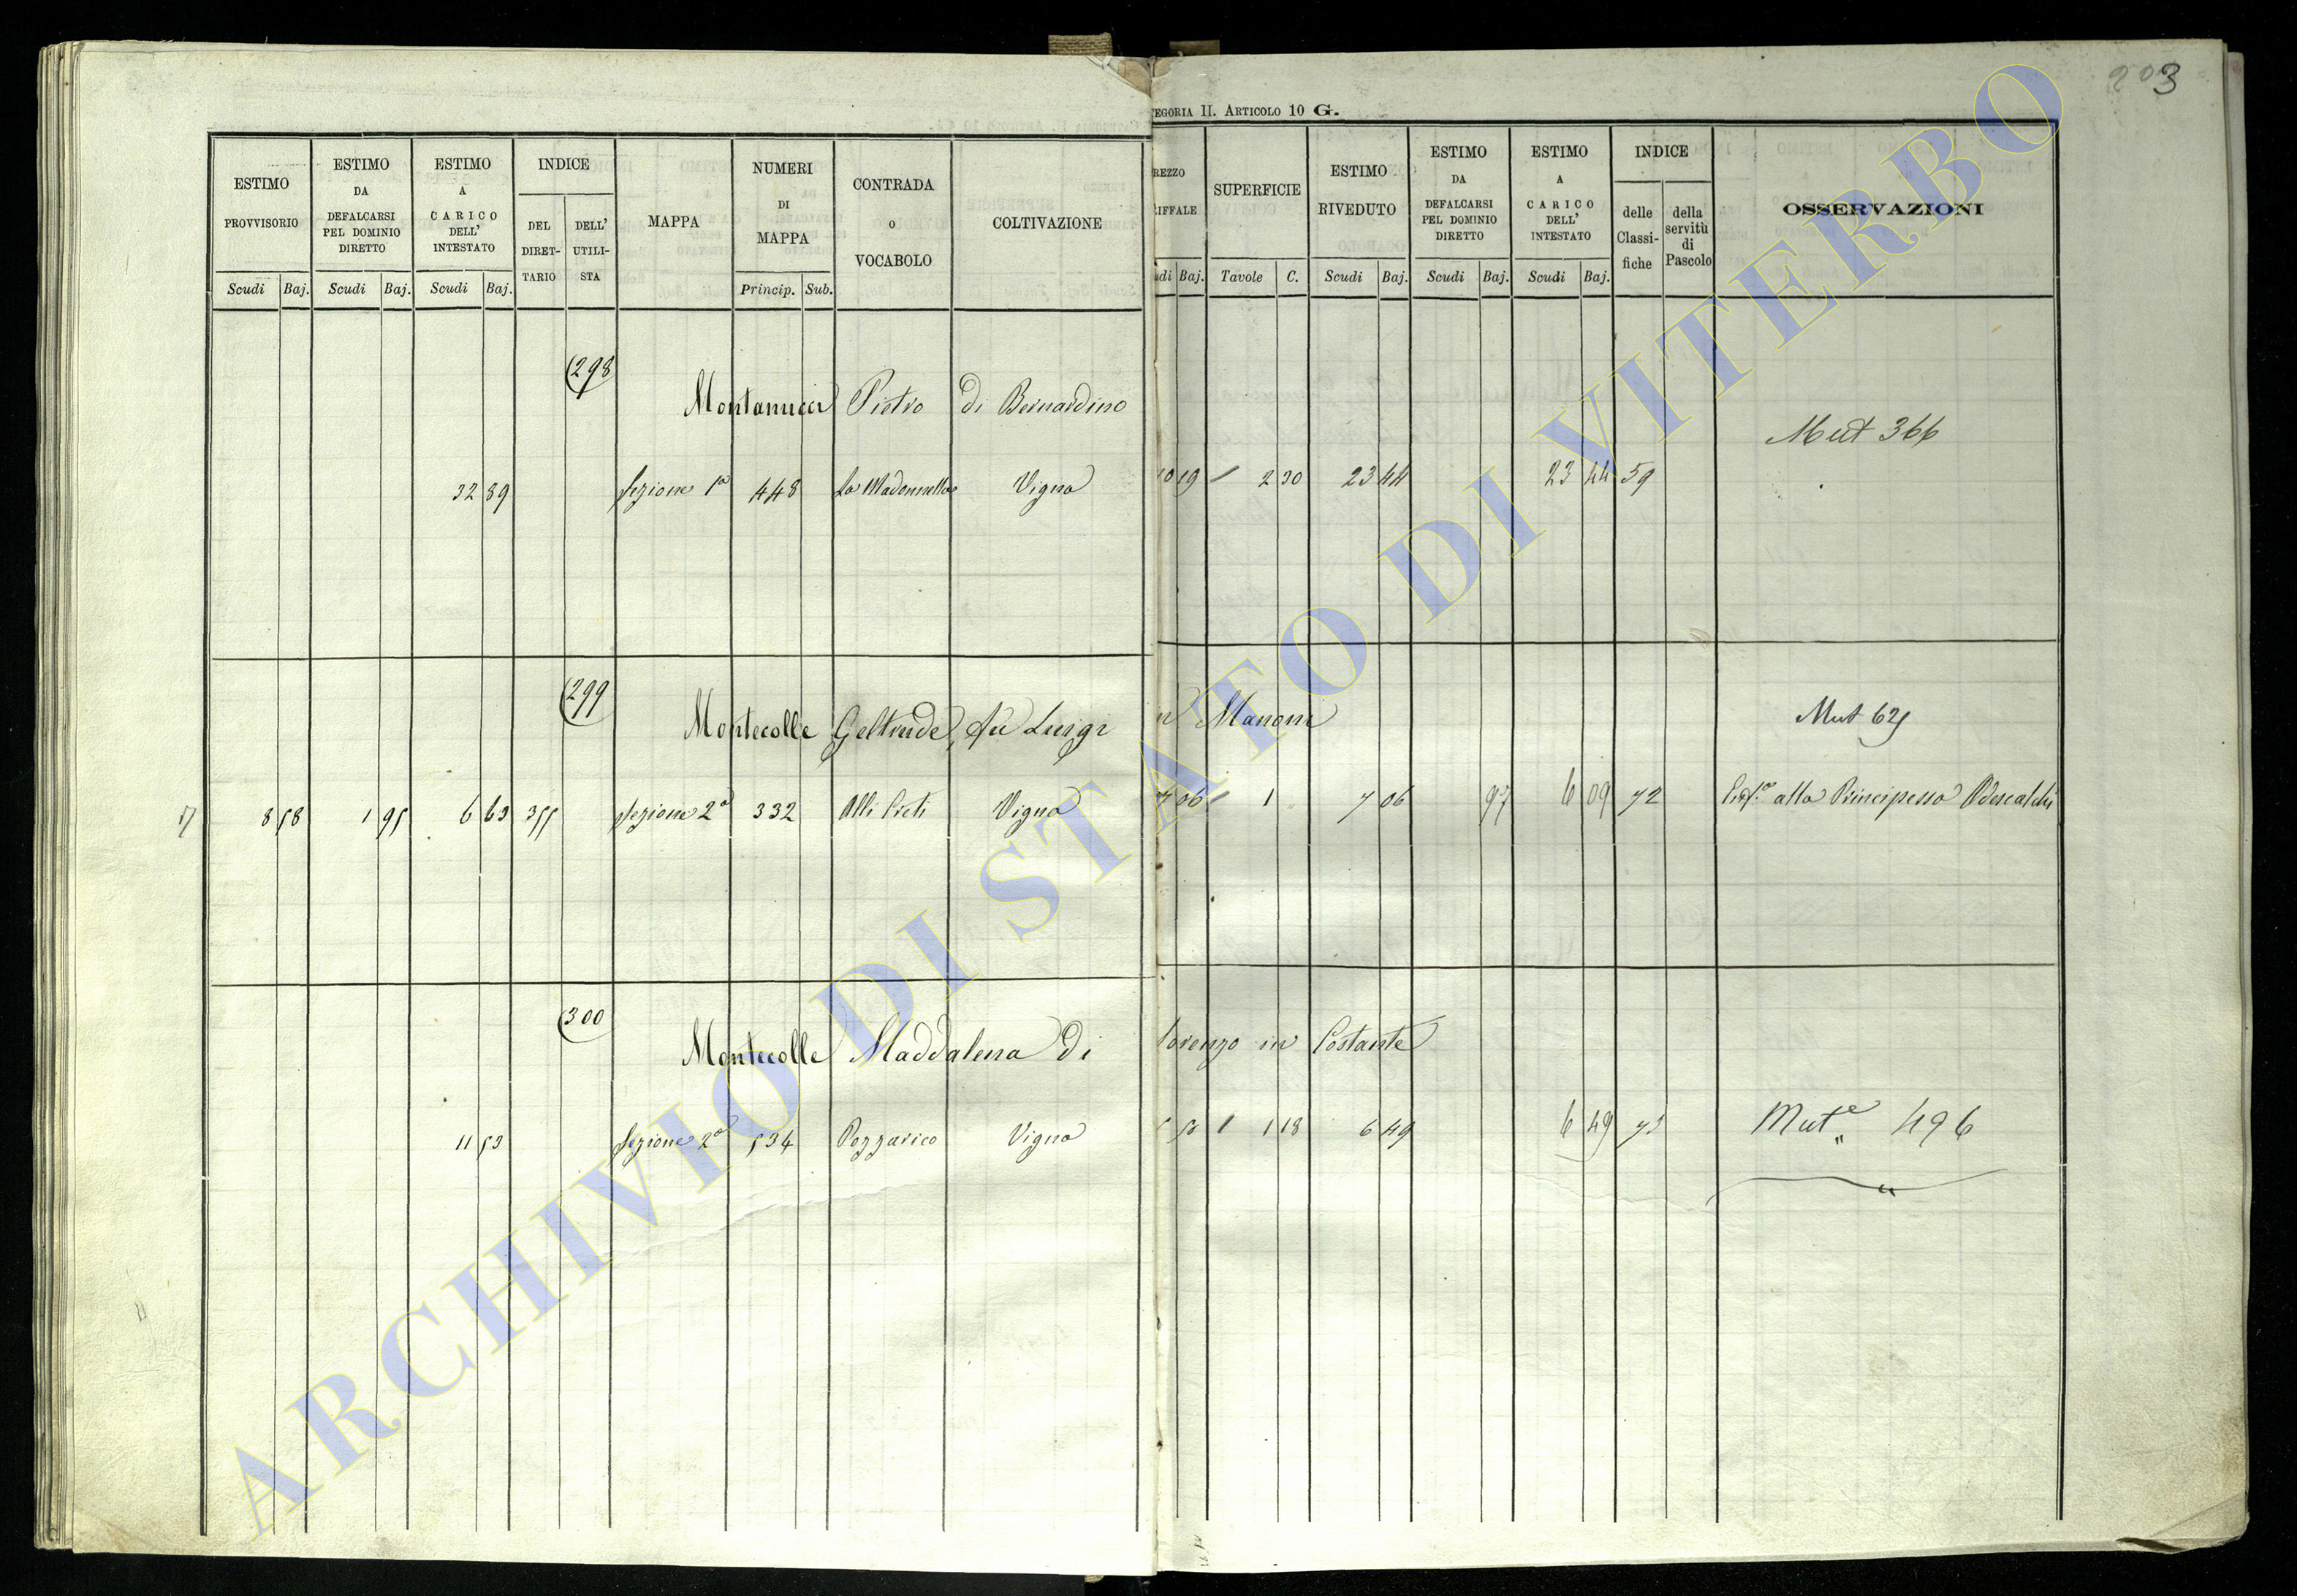 203
EGORIA II. ARTICOLO 10 G.
ESTIMO PROVVISORIO
ESTIMO DA DEFALCARSI PEL DOMINIO DIRETTO
ESTIMO A CARICO DELL' INTESTATO
INDICE
DEL DIRET- TARIO
DELL' UTILI- STA
MAPPA
NUMERI DI MAPPA
CONTRADA o VOCABOLO
COLTIVAZIONE
Scudi Baj. Scudi Baj. Scudi Baj. Princip. Sub.
REZZO IFFALE
SUPERFICIE
ESTIMO RIVEDUTO
ESTIMO DA DEFALCARSI PEL DOMINIO DIRETTO
ESTIMO A CARICO DELL' INTESTATO
INDICE
delle Classi- fiche
della servitù di Pascolo
OSSERVAZIONI
udi Baj. Tavole C. Scudi Baj. Scudi Baj. Scudi Baj.
298
Montanucci Pietro di Bernardino
Mut 366
32 89 Sezione 1a 448 La Madonnella Vigna 19 2 30 23 44 23 44 59
299
Montecolle Geltrude, fu Luigi in Manoni
Mut 625
8 58 1 95 6 63 355 Sezione 2a 332 Vigna 7 06 1 7 06 97 6 09 72 alla Principessa Odescalchi
300
Montecolle Maddalena di Lorenzo in Costante
11 53 Sezione 2a 534 Pozzarico Vigna 1 18 6 49 6 49 Mute 496
ARCHIVIO DI STATO DI VITERBO